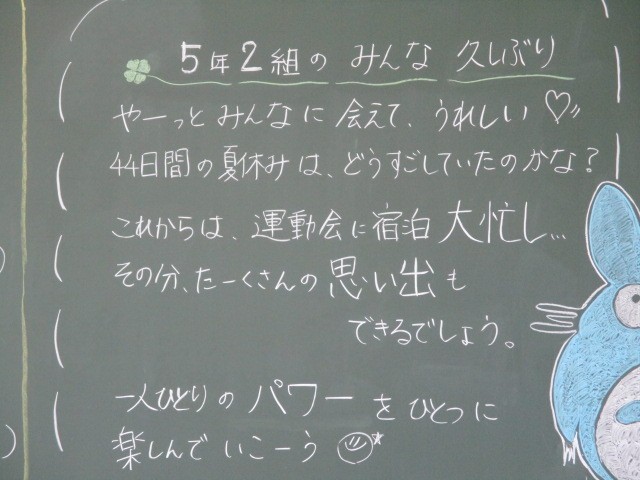 5年2組の みんな 久しぶり
やーっと みんなに 会えて、うれしい♡〃
44日間の夏休みは、どうすごしていたのかな？
これからは、運動会に宿泊 大忙し…
その分、たーくさんの思い出も
できるでしょう。
一人ひとりの パワー を ひとつに
楽しんで いこーう